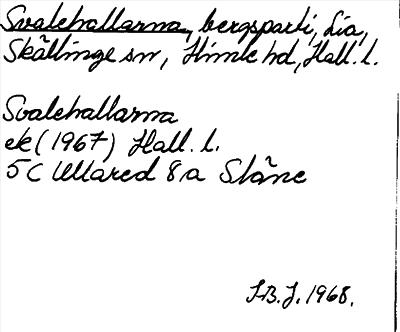 Svalehallarna, bergsparti, Lia,
Skällinge sn, Himle hd, Hall. l.
Svalehallarna
ek (1967) Hall. l.
5C Ullared 8a Ståne
S.B.J. 1968.